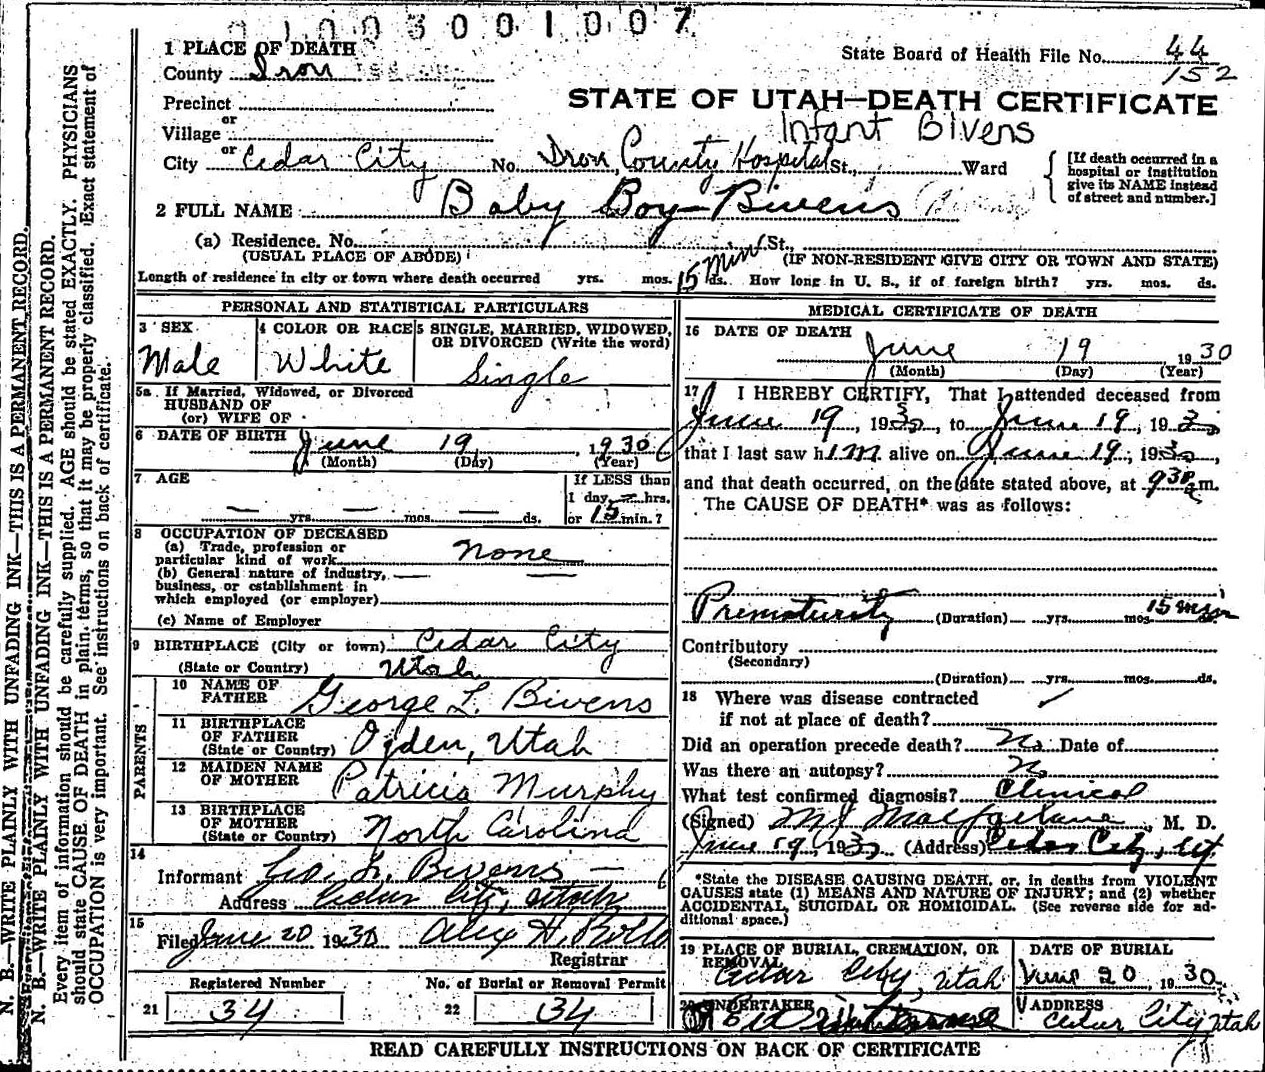 0 1 0 0 3 0 0 1 0 0 7
1 PLACE OF DEATH
County Iron
State Board of Health File No. 44
152
Precinct
or
Village
or
City Cedar City No. Iron County Hospital St., Ward
STATE OF UTAH—DEATH CERTIFICATE
Infant Bivens
[If death occurred in a
hospital or institution
give its NAME instead
of street and number.]
2 FULL NAME Baby Boy Bivens (Bivens)
(a) Residence. No. St.,
(USUAL PLACE OF ABODE) (IF NON-RESIDENT GIVE CITY OR TOWN AND STATE)
Length of residence in city or town where death occurred yrs. mos. 15 min ds. How long in U. S., if of foreign birth? yrs. mos. ds.
PERSONAL AND STATISTICAL PARTICULARS
3 SEX
Male
4 COLOR OR RACE
White
5 SINGLE, MARRIED, WIDOWED,
OR DIVORCED (Write the word)
Single
5a If Married, Widowed, or Divorced
HUSBAND OF
(or) WIFE OF
6 DATE OF BIRTH June 19, 1930
(Month) (Day) (Year)
7 AGE
— yrs. — mos. — ds.
If LESS than
1 day, — hrs.
or 15 min.?
8 OCCUPATION OF DECEASED
(a) Trade, profession or
particular kind of work None
(b) General nature of industry,
business, or establishment in
which employed (or employer)
(c) Name of Employer
9 BIRTHPLACE (City or town) Cedar City
(State or Country) Utah
PARENTS
10 NAME OF
FATHER George L. Bivens
11 BIRTHPLACE
OF FATHER
(State or Country) Ogden, Utah
12 MAIDEN NAME
OF MOTHER Patricia Murphy
13 BIRTHPLACE
OF MOTHER
(State or Country) North Carolina
14
Informant Geo. L. Bivens
Address Cedar City, Utah
15
Filed June 20 1930 Alex H. Rollo
Registrar
Registered Number No. of Burial or Removal Permit
21 34 22 34
MEDICAL CERTIFICATE OF DEATH
16 DATE OF DEATH
June 19, 1930
(Month) (Day) (Year)
17 I HEREBY CERTIFY, That I attended deceased from
June 19, 1930, to June 19, 1930
that I last saw him alive on June 19, 1930,
and that death occurred, on the date stated above, at 930 a.m.
The CAUSE OF DEATH* was as follows:
Prematurity (Duration) yrs. mos. 15 min ds.
Contributory
(Secondary)
(Duration) yrs. mos. ds.
18 Where was disease contracted
if not at place of death?
Did an operation precede death? No Date of
Was there an autopsy? No
What test confirmed diagnosis? Clinical
(Signed) M J Macfarlane, M. D.
June 19, 1930 (Address) Cedar City, Ut.
*State the DISEASE CAUSING DEATH, or, in deaths from VIOLENT
CAUSES state (1) MEANS AND NATURE OF INJURY; and (2) whether
ACCIDENTAL, SUICIDAL OR HOMICIDAL. (See reverse side for ad-
ditional space.)
19 PLACE OF BURIAL, CREMATION, OR
REMOVAL
Cedar City, Utah
DATE OF BURIAL
June 20, 1930
20 UNDERTAKER
ADDRESS
Cedar City Utah
READ CAREFULLY INSTRUCTIONS ON BACK OF CERTIFICATE
N. B.—WRITE PLAINLY WITH UNFADING INK—THIS IS A PERMANENT RECORD.
N. B.—WRITE PLAINLY WITH UNFADING INK—THIS IS A PERMANENT RECORD.
Every item of information should be carefully supplied. AGE should be stated EXACTLY. PHYSICIANS
should state CAUSE OF DEATH in plain terms, so that it may be properly classified. Exact statement of
OCCUPATION is very important. See instructions on back of certificate.